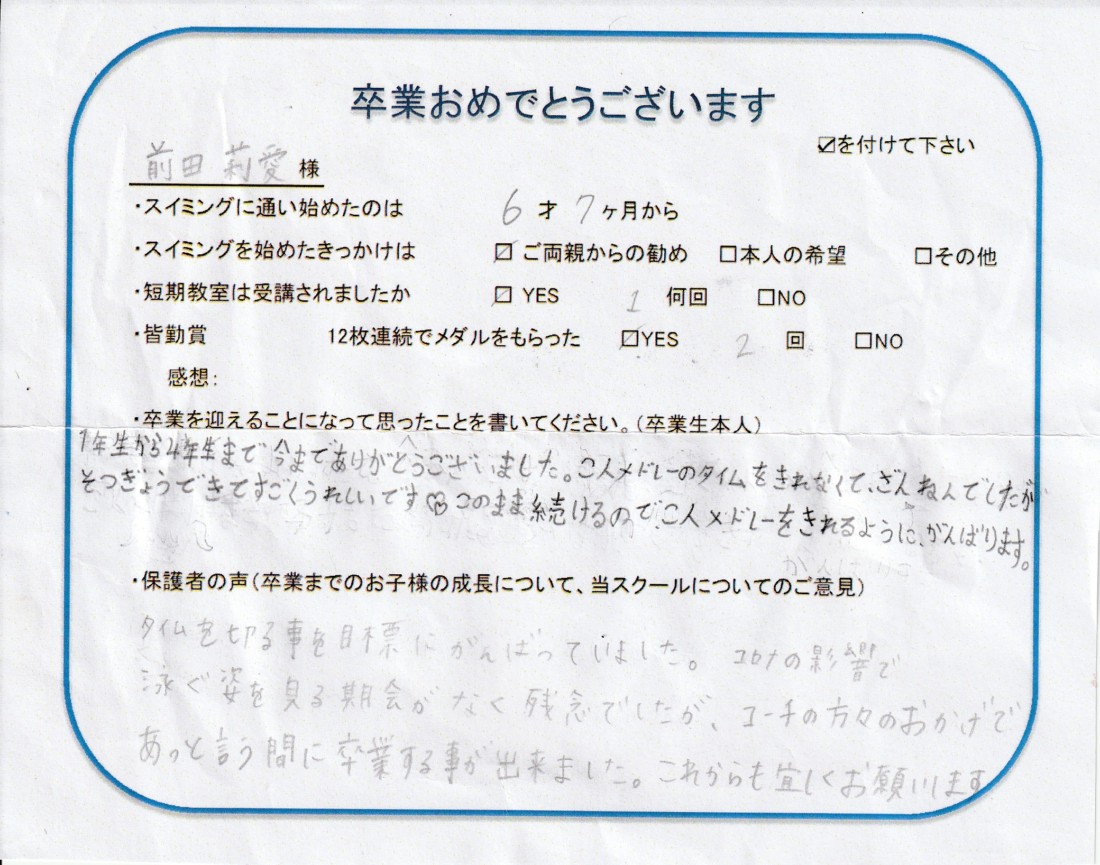 卒業おめでとうございます
☑を付けて下さい
前田 莉愛 様
・スイミングに通い始めたのは 6 才 7 ヶ月から
・スイミングを始めたきっかけは ☑ ご両親からの勧め □本人の希望 □その他
・短期教室は受講されましたか ☑ YES 1 何回 □NO
・皆勤賞 12枚連続でメダルをもらった ☑YES 2 回 □NO
感想：
・卒業を迎えることになって思ったことを書いてください。（卒業生本人）
1年生から4年生まで今までありがとうございました。こ人メドレーのタイムをきれなくて、ざんねんでしたが
そつぎょうできてすごくうれしいです♡このまま続けるのでこ人メドレーをきれるように、がんばります。
・保護者の声（卒業までのお子様の成長について、当スクールについてのご意見）
タイムを切る事を目標にがんばっていました。コロナの影響で
泳ぐ姿を見る期会がなく残念でしたが、コーチの方々のおかげで
あっと言う間に卒業する事が出来ました。これからも宜しくお願いします